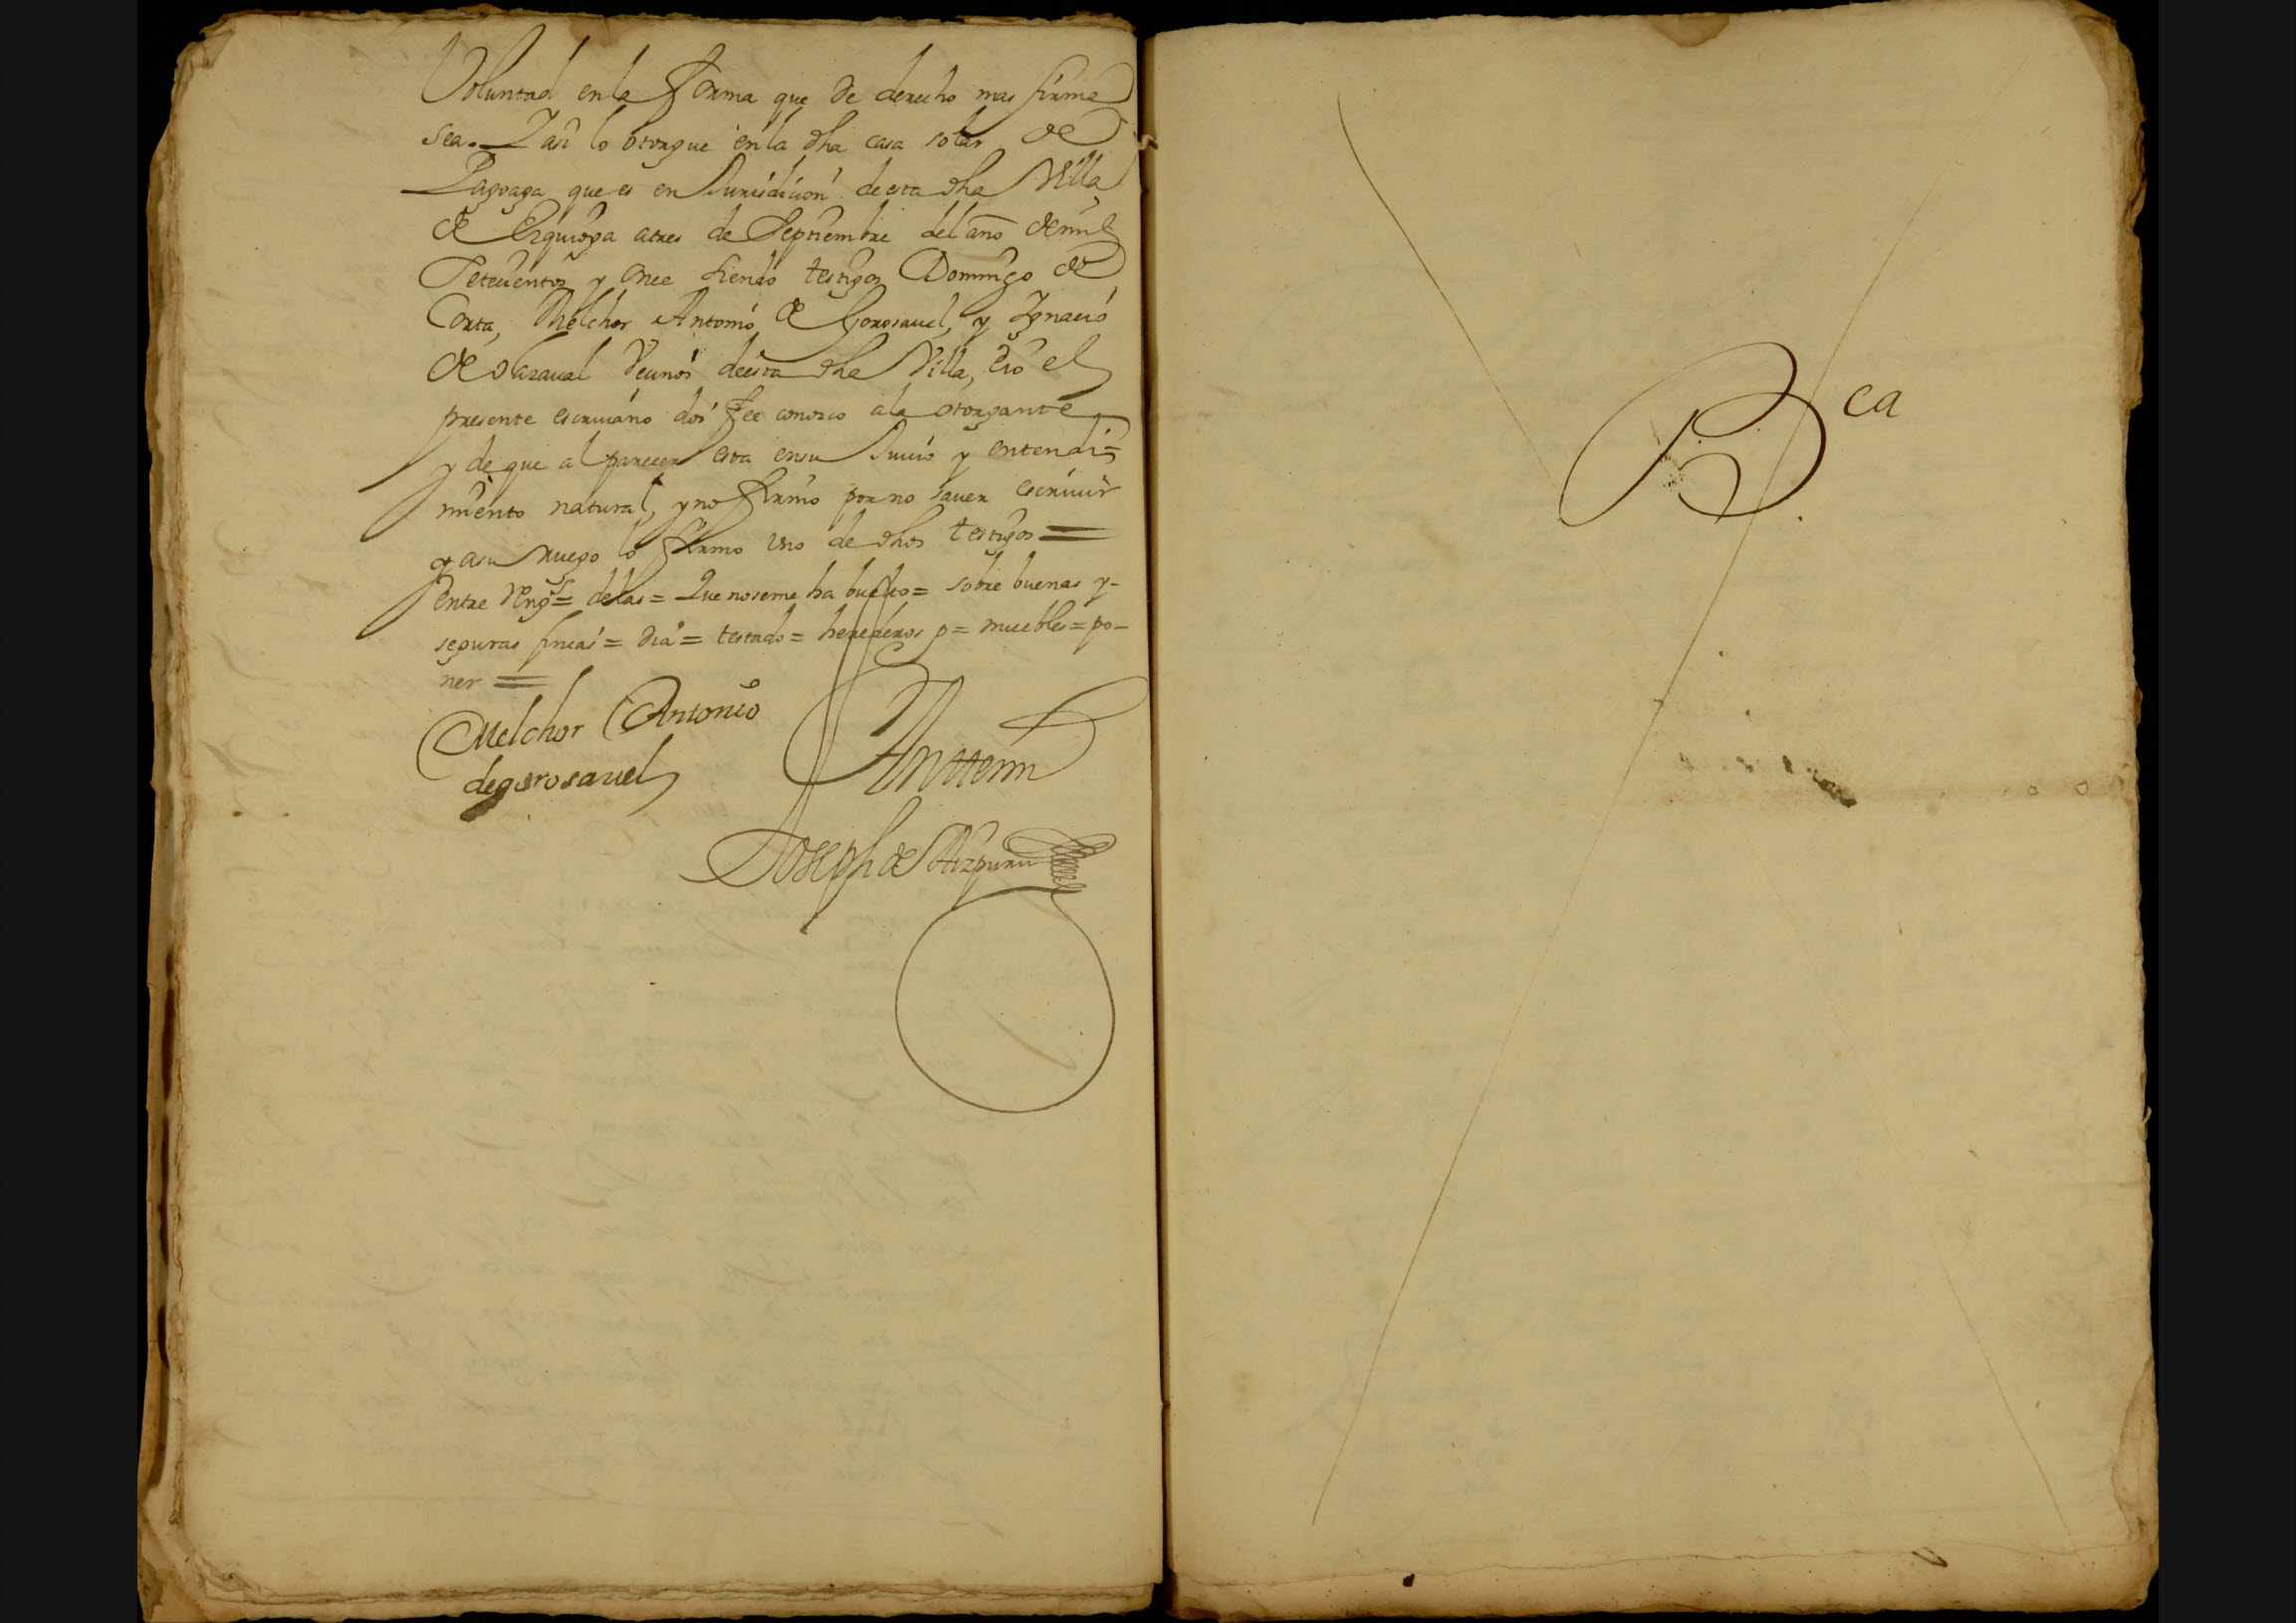 Voluntad en la forma que de derecho mas firme
sea. Y asi lo otorgue en la dha casa solar de
Pagoaga que es en Jurisdicion de esta dha Villa
de Ezquioga a tres de Septiembre del año de mil
Setecientos y once siendo testigos Domingo de
Corta, Melchor Antonio de Gorosauel, y Ignacio
de Olazaual Vecinos de esta dha Villa, E io el
presente escriuano doi fee conozco a la otorgante
y de que al parecer esta en su Juicio y entendi=
miento natural, y no firmo por no sauer escriuir
y a su ruego lo firmo uno de dhos testigos =
entre Reng.s = de las = Que no se me ha buelto = sobre buenas y-
seguras fincas = dia = testado = herederos p = muebles = po-
ner =
Melchor Antonio
de gorosauel
Ante mi
Joseph de Aizpuru
B ca